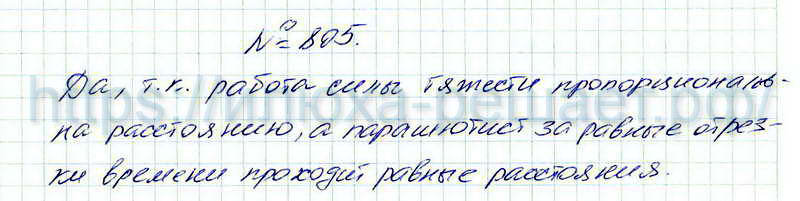 №805.
Да, т.к. работа силы тяжести пропорциональ-
на расстоянию, а парашютист за равные отрез-
ки времени проходит равные расстояния.